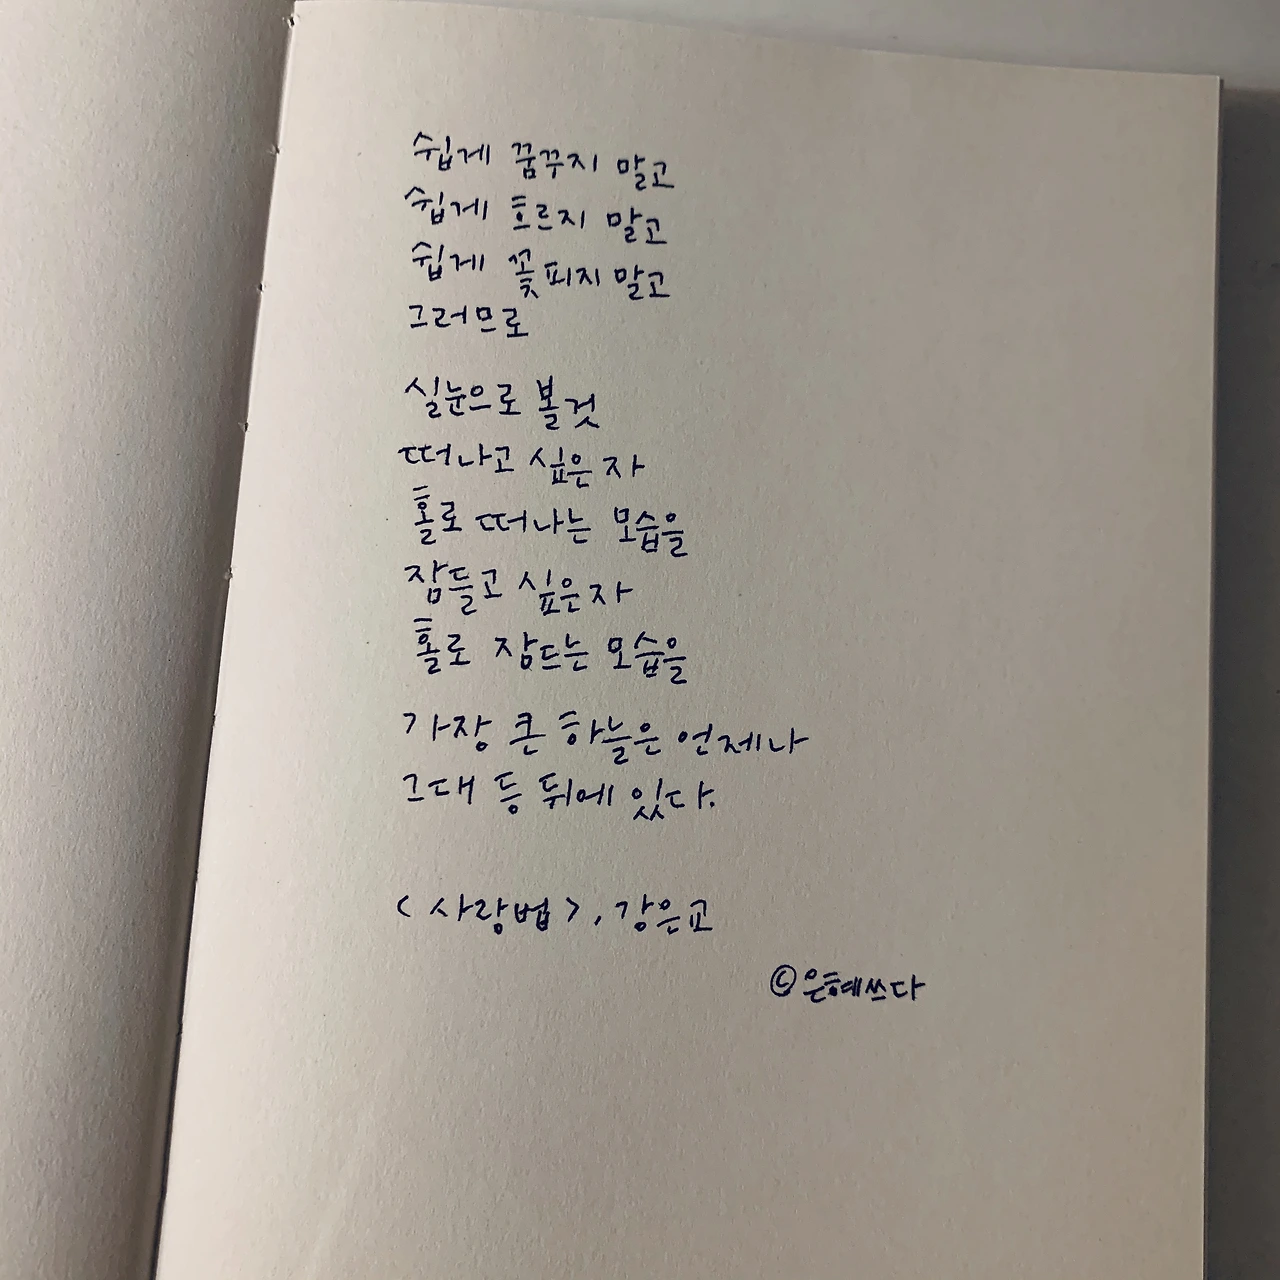 쉽게 꿈꾸지 말고
쉽게 흐르지 말고
쉽게 꽃피지 말고
그러므로
실눈으로 볼것
떠나고 싶은 자
홀로 떠나는 모습을
잠들고 싶은 자
홀로 잠드는 모습을
가장 큰 하늘은 언제나
그대 등 뒤에 있다.
< 사랑법 >, 강은교
©은혜쓰다